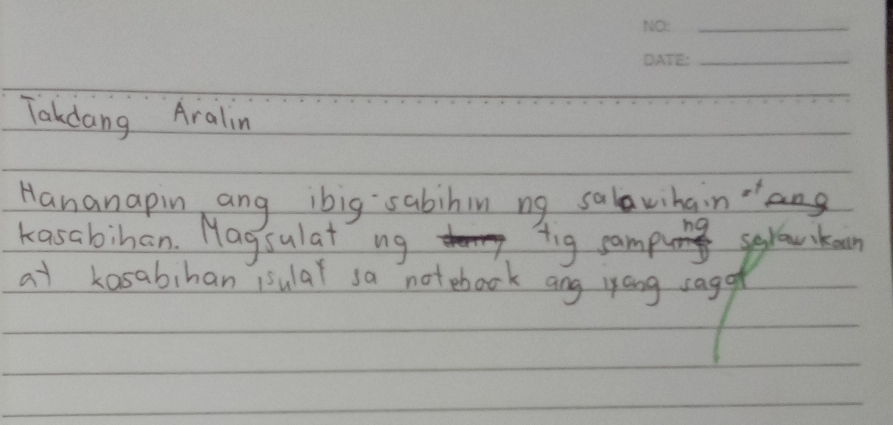 NO:
DATE:
Takdang Aralin
Hananapin ang ibig-sabihin ng salawihain at ang
kasabihan. Magsulat ng tig sampung salawikain
at kasabihan isulat sa notebook ang iyong sagot